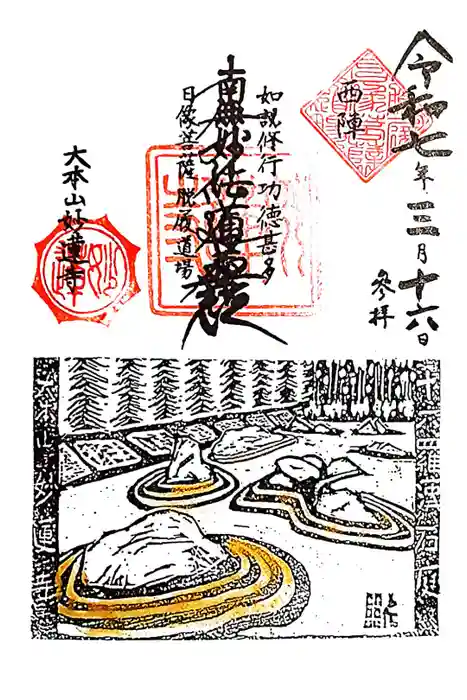 令和七年三月十六日
參拜
西陣
如説修行功徳甚多
南無妙法蓮華経
日像菩薩脱履道場
大本山妙蓮寺
十六羅漢石庭
大本山妙蓮寺